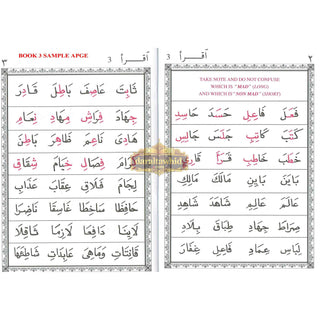 ٢
اقرأ 3
TAKE NOTE AND DO NOT CONFUSE
WHICH IS "MAD" (LONG)
AND WHICH IS "NON MAD" (SHORT)
فَعَلَ فَاعِلٍ حَسَدَ حَاسِدٍ
كَتَبَ كَاتِبٍ جَلَسَ جَالِسٍ
خَطَبَ خَاطِبٍ قَرَأَ
شَهِدَ شَاهِدٌ
صِرَاطَ جِهَادِ طِبَاقَ بِلَادِ
لِبَاسِ عِمَادِ فَاعِلِ غِفَارَ
٣
اقرأ 3
BOOK 3 SAMPLE APGE
ثَابِتَ عَاصِفَ بَاطِلَ قَادِرَ
جِهَادَ فِرَاشِ مِهَادِ
هَادِى نَاعِمَ ظَاهِرَ بَاطِنَ
فِصَالِ خِيَامَ شِقَاقِ
لِجَامَ فَلَاقِ عِقَابَ عَذَابَ
حَافِظًا سَاخِطًا غَاسِقًا نَاضِرًا
دَافِعًا لَازِمًا
قَانِتَاتٍ وَمَاهِىَ عَابِدَاتٍ